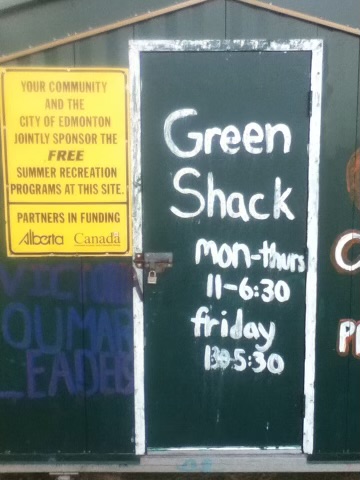 YOUR COMMUNITY
AND THE
CITY OF EDMONTON
JOINTLY SPONSOR THE
FREE
SUMMER RECREATION
PROGRAMS AT THIS SITE.
PARTNERS IN FUNDING
Alberta Canada
Green
Shack
mon-thurs
11-6:30
friday
5:30